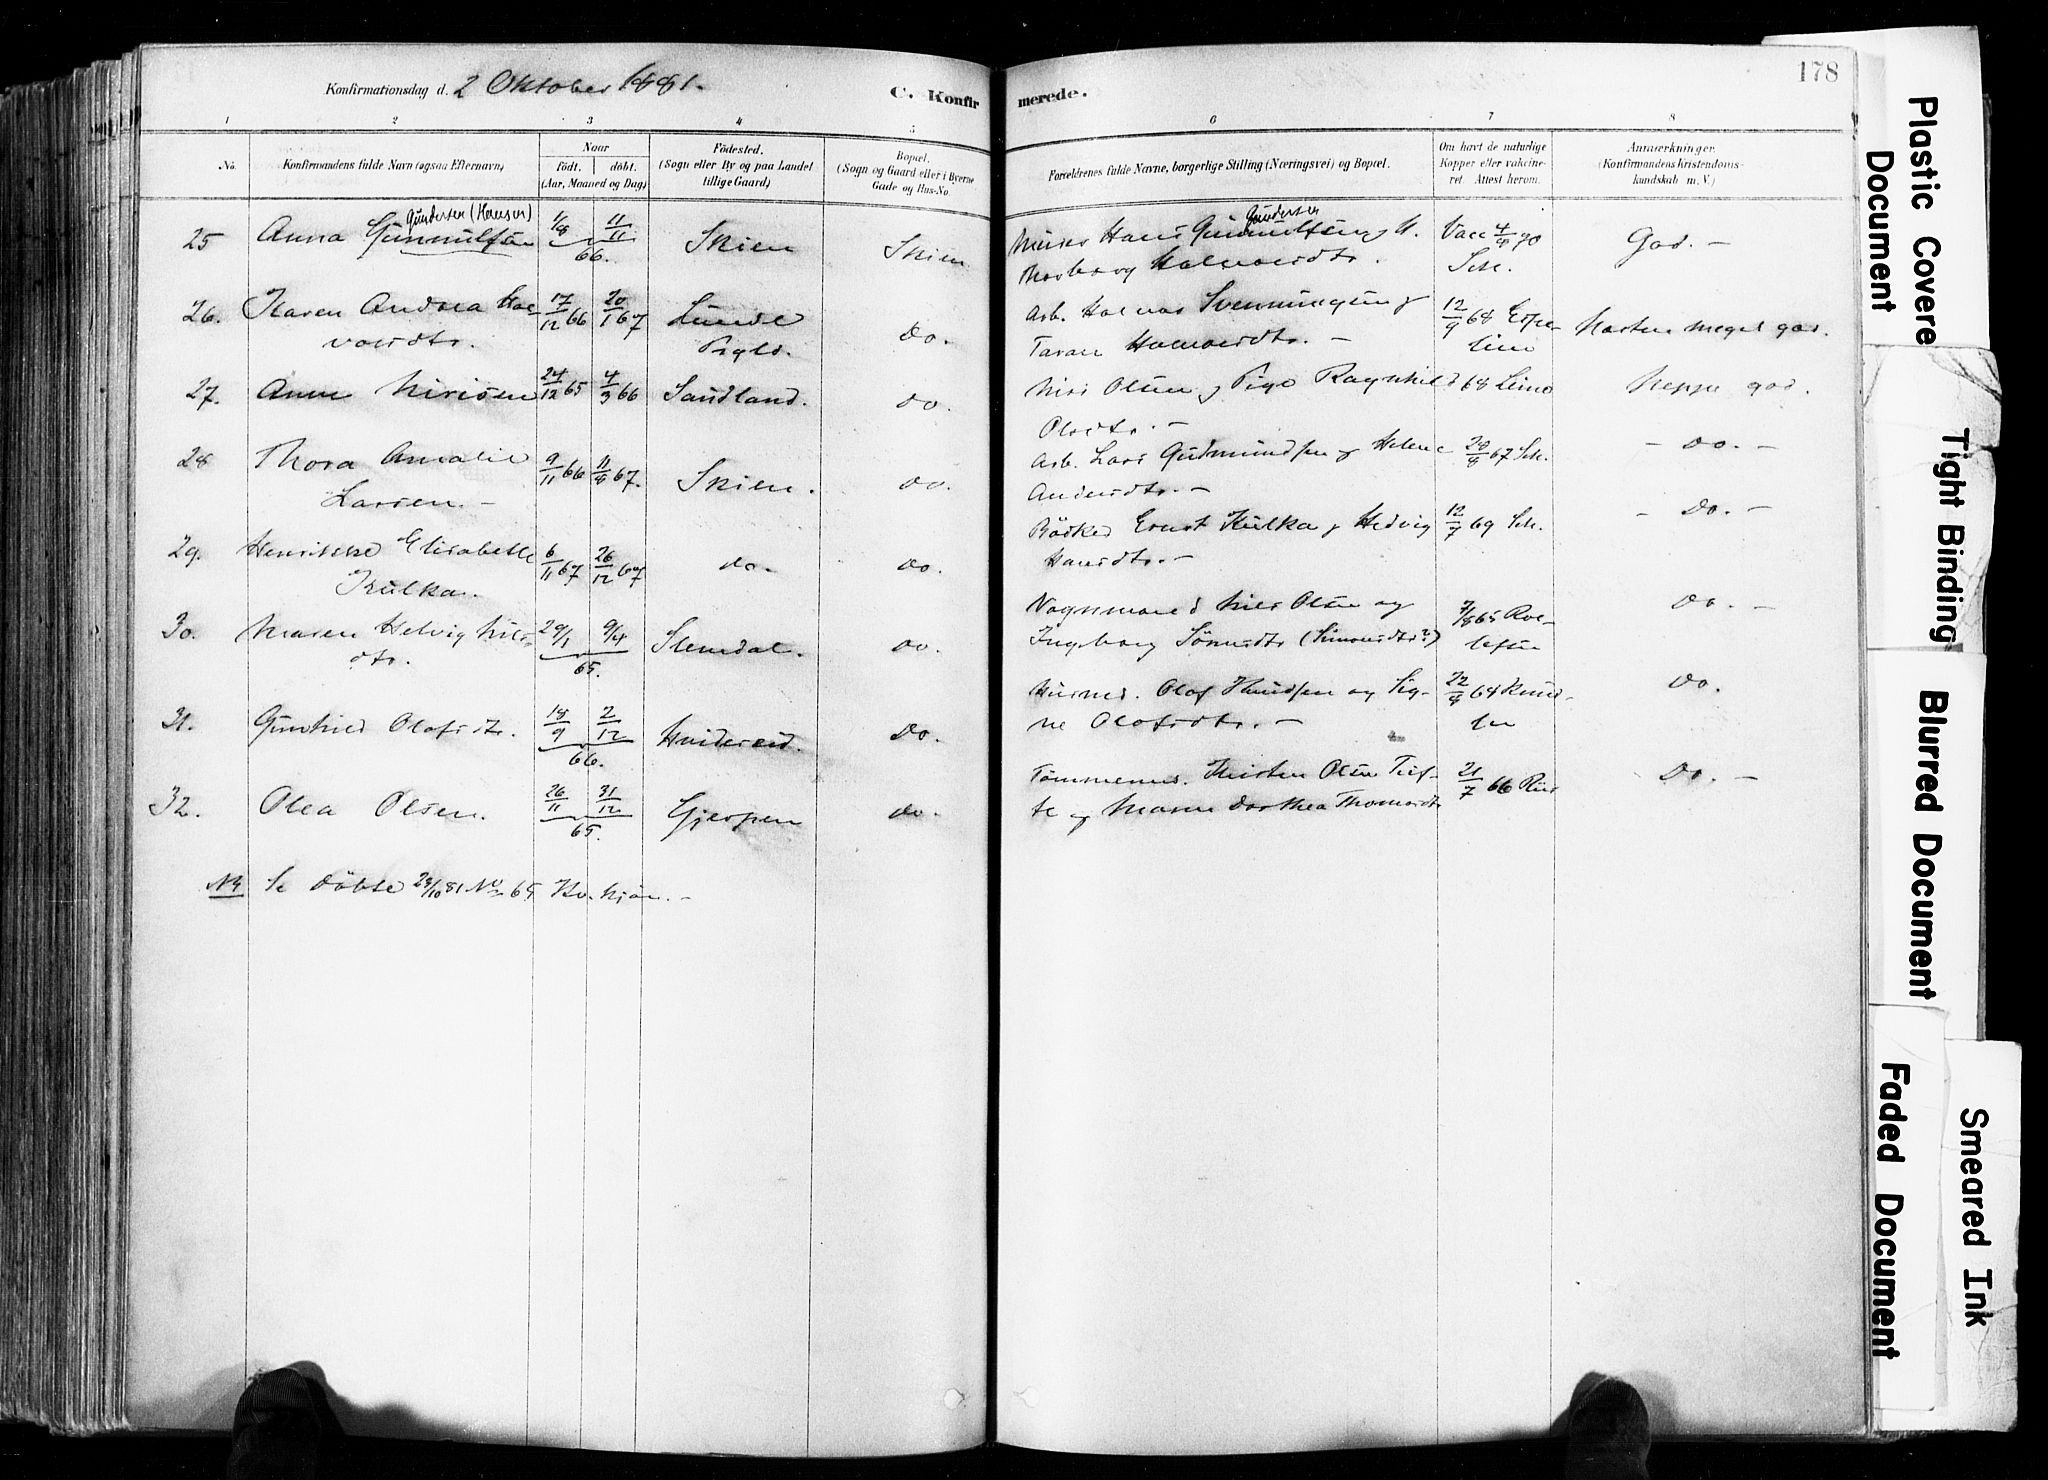 178
Konfirmationsdag d. 2 Oktober 1881.
C. Konfirmerede.
1 2 3 4 5 6 7 8
No.
Konfirmandens fulde Navn (ogsaa Efternavn)
Naar
födt. döbt.
(Aar, Maaned og Dag)
Födested.
(Sogn eller By og paa Landet
tillige Gaard)
Bopæl.
(Sogn og Gaard eller i Byerne
Gade og Hus-No
Forældrenes fulde Navne, borgerlige Stilling (Næringsvei) og Bopæl.
Om havt de naturlige
Kopper eller vaksine-
ret. Attest herom.
Anmærkninger.
(Konfirmandens Kristendoms-
kundskab m. V.)
Gundersen (Hansen) Gundersen
25 Anna Gunnulfsen 1/8 11/11 66. Skien Skien Hans Gunnulfsen
Halvorsdtr. Vacc 4/8 70 Sch. God. –
26. Karen Andrea Hal-
vorsdtr. 17/12 66 20/1 67 Lunde Prgld. Do. Arb. Halvor Svenningsen og
Taran Halvorsdtr. – 12/9 68 Næsten meget god.
27. Anne Nirisen 24/12 65 4/3 66 Sandland. Do. Olsen og Pige Ragnhild
Olsdtr. – 68 Neppe god.
28 Thora Amalie
Larsen. – 9/11 66 11/8 67. Skien. Do. Arb. Lars Gudmundsen og Helene
Andersdtr. – 28/8 67 Sch. – Do. –
29. Elisabeth
Kulka. 6/11 67 26/12 67 do. Do. Bödker Ernst Kulka og Hedvig
Hansdtr. – 12/7 69 Sch. – Do. –
30. Maren Helvig Nils-
dtr. 29/1 9/4 65. Slemdal. Do. Vognmand Nils Olsen og
Ingeborg (Simonsdtr?) 7/8 65 Roe-
lefsen Do. –
31. Gunhild Olafsdtr. 18/9 2/12 66. Hvideseid. Do. Husmd. Olaf Knudsen og Sig-
ne Olafsdtr. – 22/8 68 Knud-
sen Do.
32. Olea Olsen. 26/11 31/12 65. Gjerpen Do. Tömmermd. Olsen Tuf-
te og Maren Dorthea Thomasdtr 21/7 66 Do. –
NB Se Döbte 23/10 81 No 65 Kv. Kjön. –
Plastic Covered Document
Tight Binding
Blurred Document
Faded Document
Smeared Ink